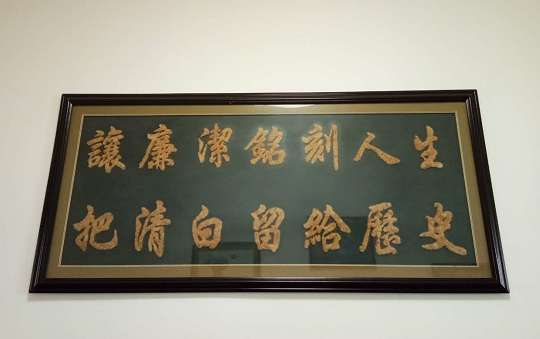 讓廉潔銘刻人生
把清白留給歷史